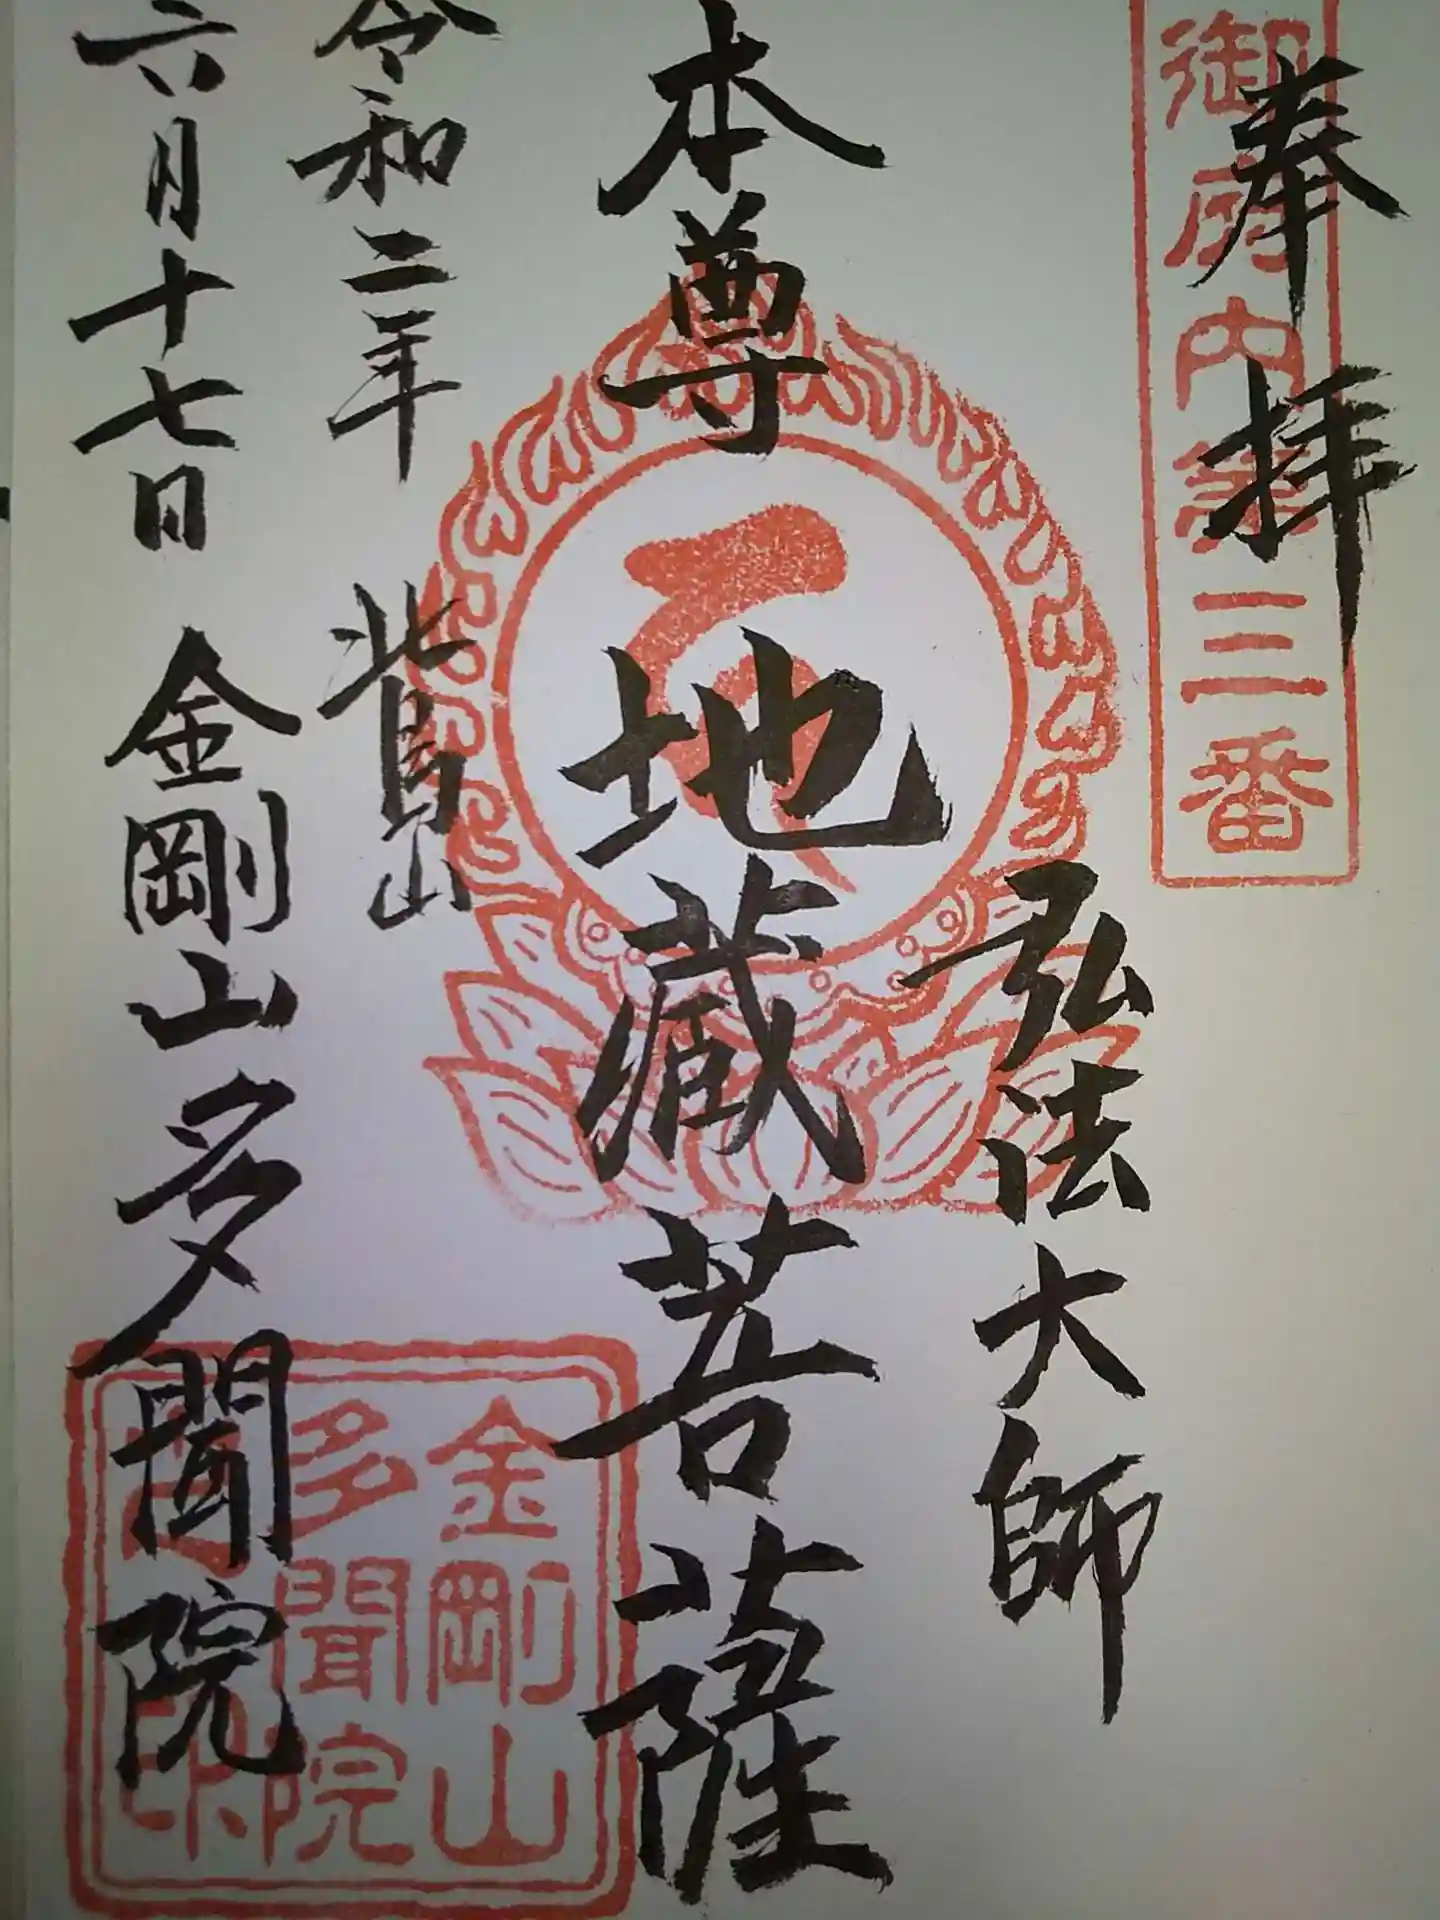 奉拝
御府内第三番
弘法大師
本尊 地蔵菩薩
令和二年
六月十七日
金剛山多聞院
金剛山
多聞院